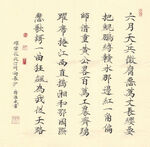 六月天兵徵腐惡萬丈長纓要
把鯤鵬縛贛水那邊紅一角偏
師借重黃公略百萬工農齊踴
躍席捲江西直搗湘和鄂國際
悲歌歌一曲狂飆為我從天落
蝶戀花從汀州向長沙